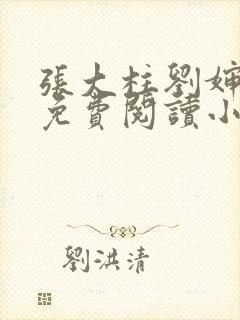 張大柱劉嬸
免費閱讀小
劉洪清